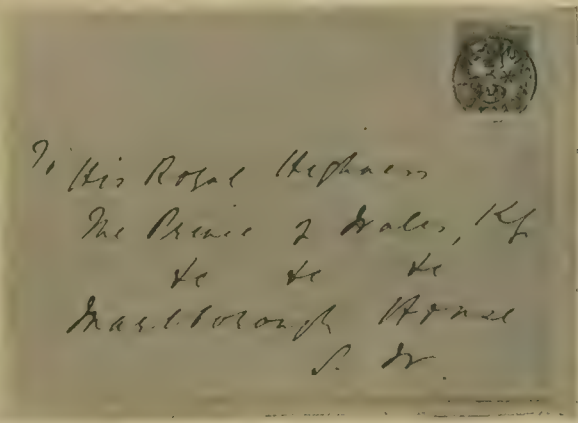 To His Royal Highness
The Prince of Wales, KG
&c &c &c
Marlborough House
S. W.